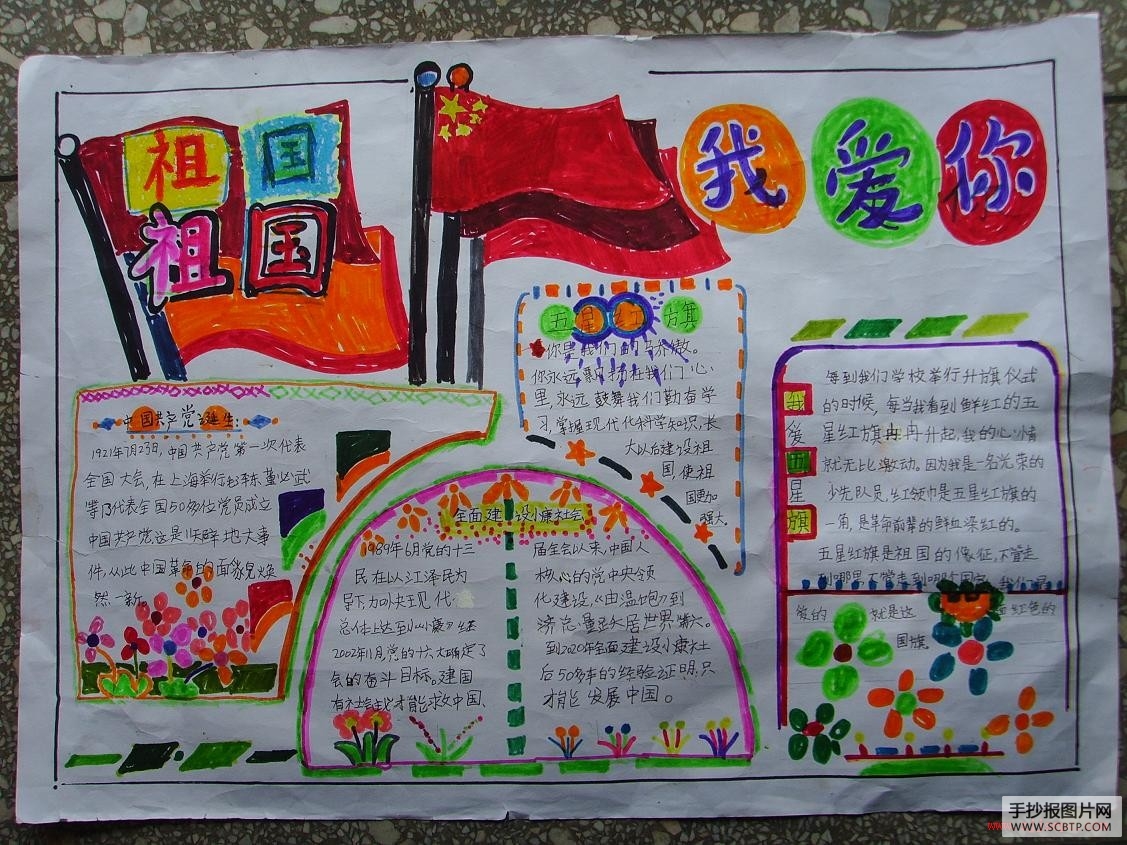 祖国
祖国
我爱你
中国共产党诞生:
1921年7月23日,中国共产党第一次代表
全国大会,在上海举行毛泽东董必武
等13代表全国50多位党员成立
中国共产党这是1天辟地大事
件,从此中国革命的面貌见焕
然一新。
五星红旗
你是我们的骄傲。
你永远飘扬在我们心
里,永远鼓舞我们勤奋学
习,掌握现代化科学知识,长
大以后建设祖
国,使祖
国更加
强大。
全面建设小康社会
1989年6月党的十三
民在以江泽民为
导下,加快现代
总体上达到《小康》经
2002年11月党的十六大确定了
会的奋斗目标。建国
有社会主义才能求文中国、
届全会以来,中国人
核心的党中央领
化建设,《由温饱》到
济总量跃居世界第六。
到2020年全面建设小康社
后50多年的经验证明,只
才能发展中国。
我爱五星旗
每到我们学校举行升旗仪式
的时候,每当我看到鲜红的五
星红旗冉冉升起,我的心情
就无比激动。因为我是一名光荣的
少先队员,红领巾是五星红旗的
一角,是革命前辈的鲜血染红的。
五星红旗是祖国的象征,不管走
到哪里,不管走到哪个国
爱的 就是这 面红色的
国旗。
手抄报图片网
WWW.SCBTP.COM